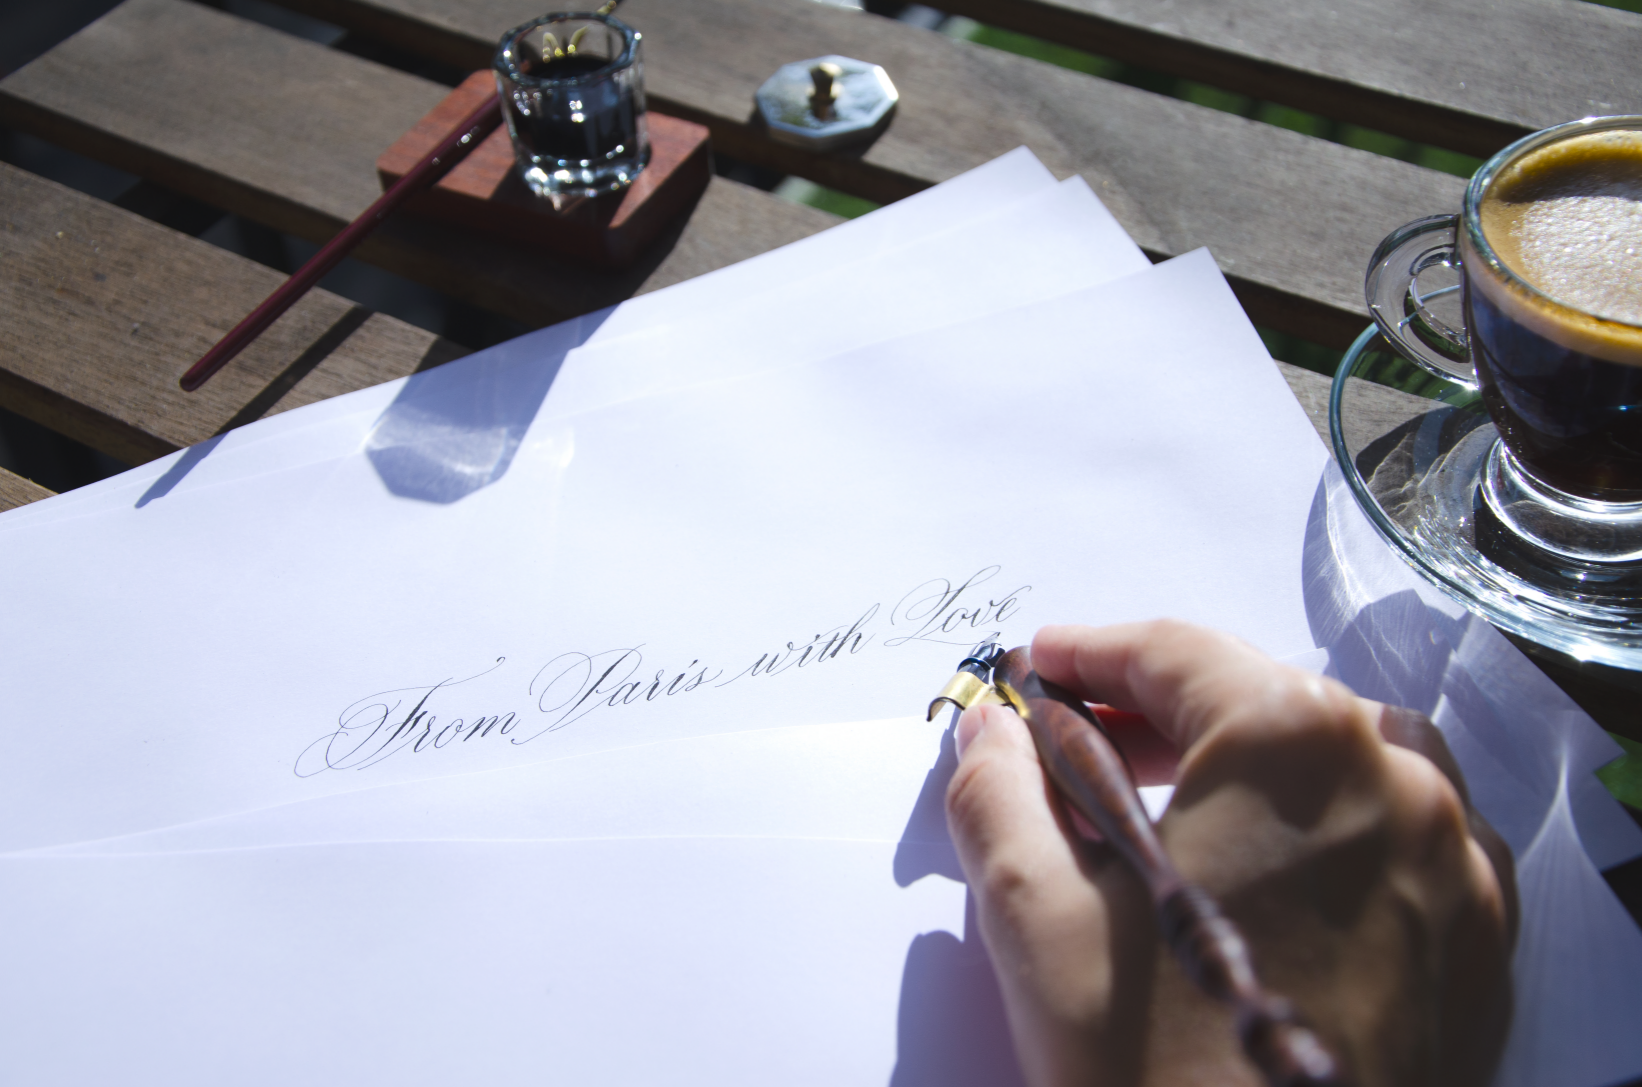 From Paris with Love